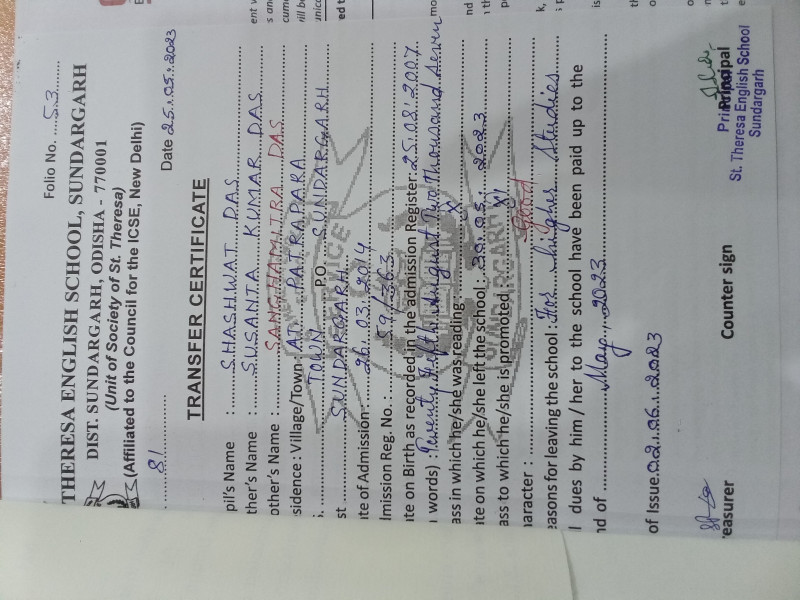 Folio No. ....53......
THERESA ENGLISH SCHOOL, SUNDARGARH
DIST. SUNDARGARH, ODISHA - 770001
(Unit of Society of St. Theresa)
(Affiliated to the Council for the ICSE, New Delhi)
81 Date 25.05.2023
TRANSFER CERTIFICATE
pil's Name : SHASHWAT DAS
ther's Name : SUSANTA KUMAR DAS
other's Name : SANGHAMITRA DAS
sidence : Village/Town : AT PATRAPARA
TOWN P.O SUNDARGARH
st SUNDARGARH
te of Admission : 26.03.2014
lmission Reg. No. : 59/363
te on Birth as recorded in the admission Register: 25.08.2007
words) : Twenty Fifth August Two Thousand Seven
ass in which he/she was reading : X
te on which he/she left the school : 2023
ass to which he/she is promoted : XI
aracter : Good
easons for leaving the school : For higher Studies
l dues by him / her to the school have been paid up to the
nd of May, 2023
of Issue 02.06.2023
easurer Counter sign Principal
St. Theresa English School
Sundargarh